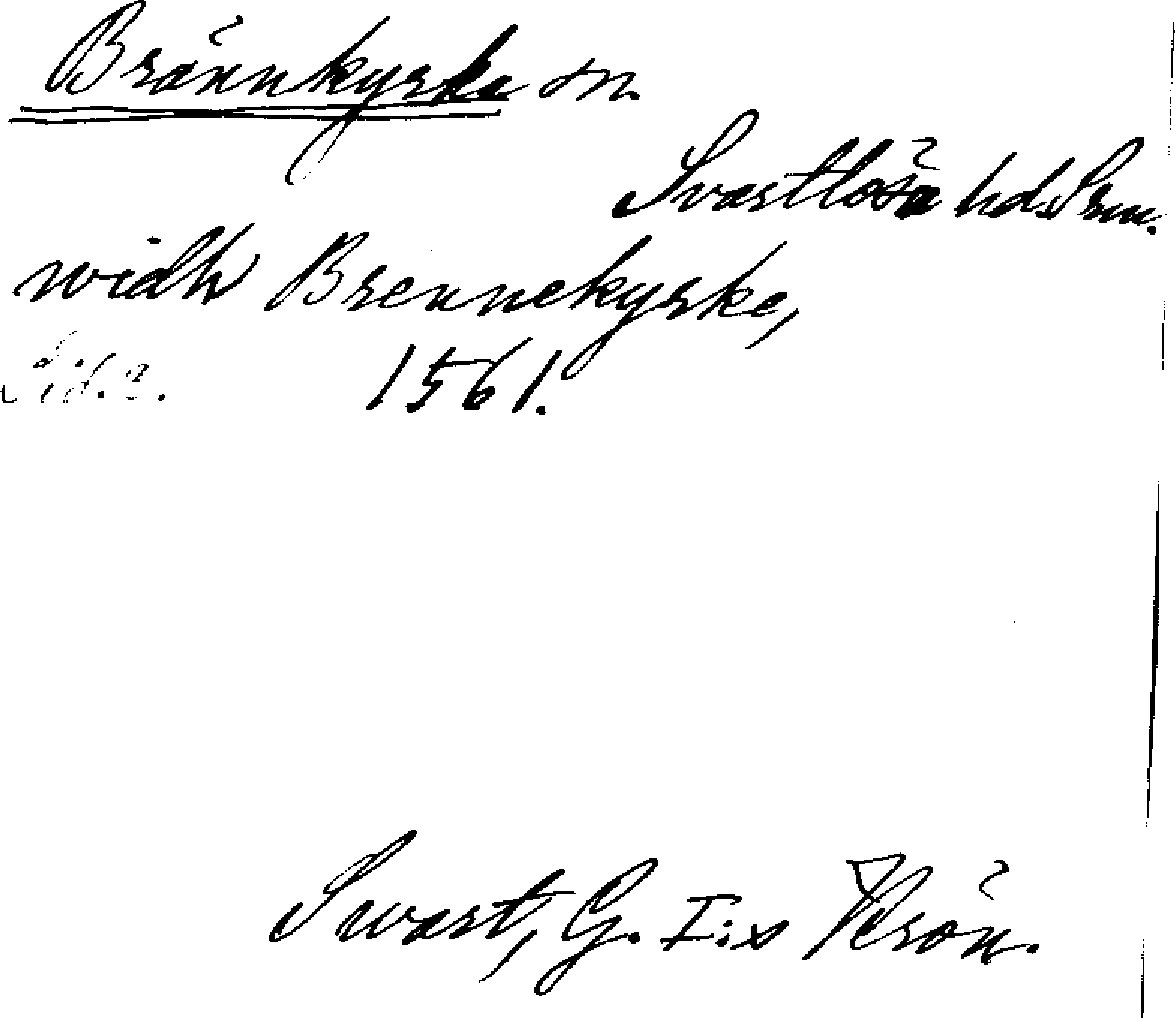 Brännkyrka sn.
Svartlösa hd. Srm.
widh Brennekyrke,
Sid. 2.
1561.
Swart, G. I:s Krön.